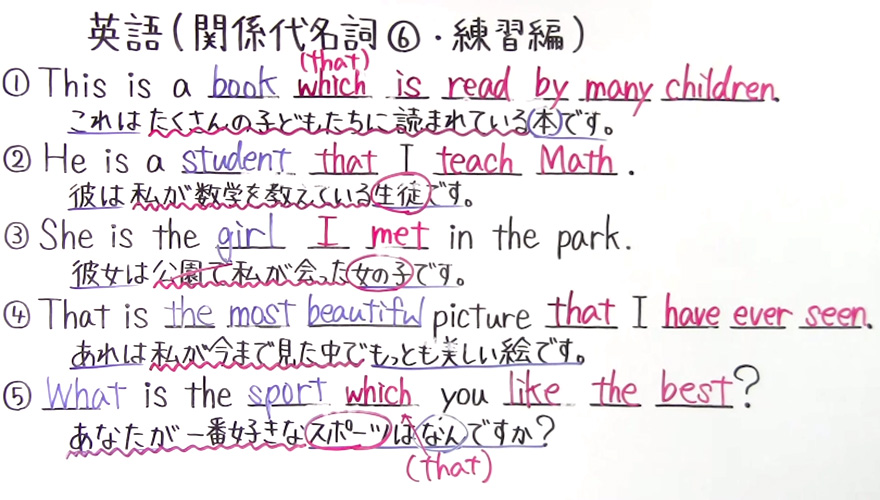 英語(関係代名詞⑥・練習編)
(that)
① This is a book which is read by many children.
これはたくさんの子どもたちに読まれている本です。
② He is a student that I teach Math.
彼は私が数学を教えている生徒です。
③ She is the girl I met in the park.
彼女は公園で私が会った女の子です。
④ That is the most beautiful picture that I have ever seen.
あれは私が今まで見た中でもっとも美しい絵です。
⑤ What is the sport which you like the best?
あなたが一番好きなスポーツはなんですか?
(that)